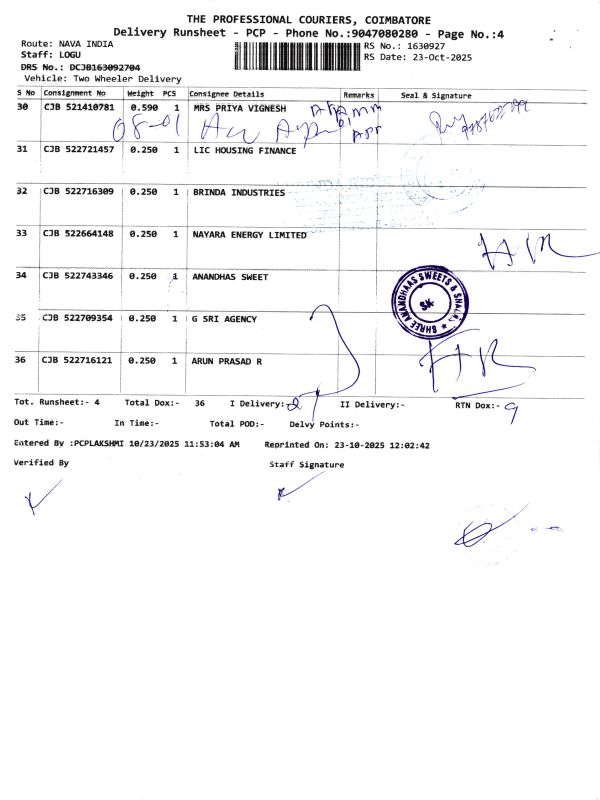 THE PROFESSIONAL COURIERS, COIMBATORE
Delivery Runsheet - PCP - Phone No.:9047080280 - Page No.:4
Route: NAVA INDIA
RS No.: 1630927
Staff: LOGU
RS Date: 23-Oct-2025
DRS No.: DCJB163092704
Vehicle: Two Wheeler Delivery
S No Consignment No Weight PCS Consignee Details Remarks Seal & Signature
30 CJB 521410781 0.590 1 MRS PRIYA VIGNESH
08-01
31 CJB 522721457 0.250 1 LIC HOUSING FINANCE
32 CJB 522716309 0.250 1 BRINDA INDUSTRIES
33 CJB 522664148 0.250 1 NAYARA ENERGY LIMITED
34 CJB 522743346 0.250 1 ANANDHAS SWEET
SHREE ANANDHAAS SWEETS & SNACKS
35 CJB 522709354 0.250 1 G SRI AGENCY
36 CJB 522716121 0.250 1 ARUN PRASAD R
Tot. Runsheet:- 4 Total Dox:- 36 I Delivery:- 27 II Delivery:- RTN Dox:- 9
Out Time:- In Time:- Total POD:- Delvy Points:-
Entered By :PCPLAKSHMI 10/23/2025 11:53:04 AM Reprinted On: 23-10-2025 12:02:42
Verified By Staff Signature